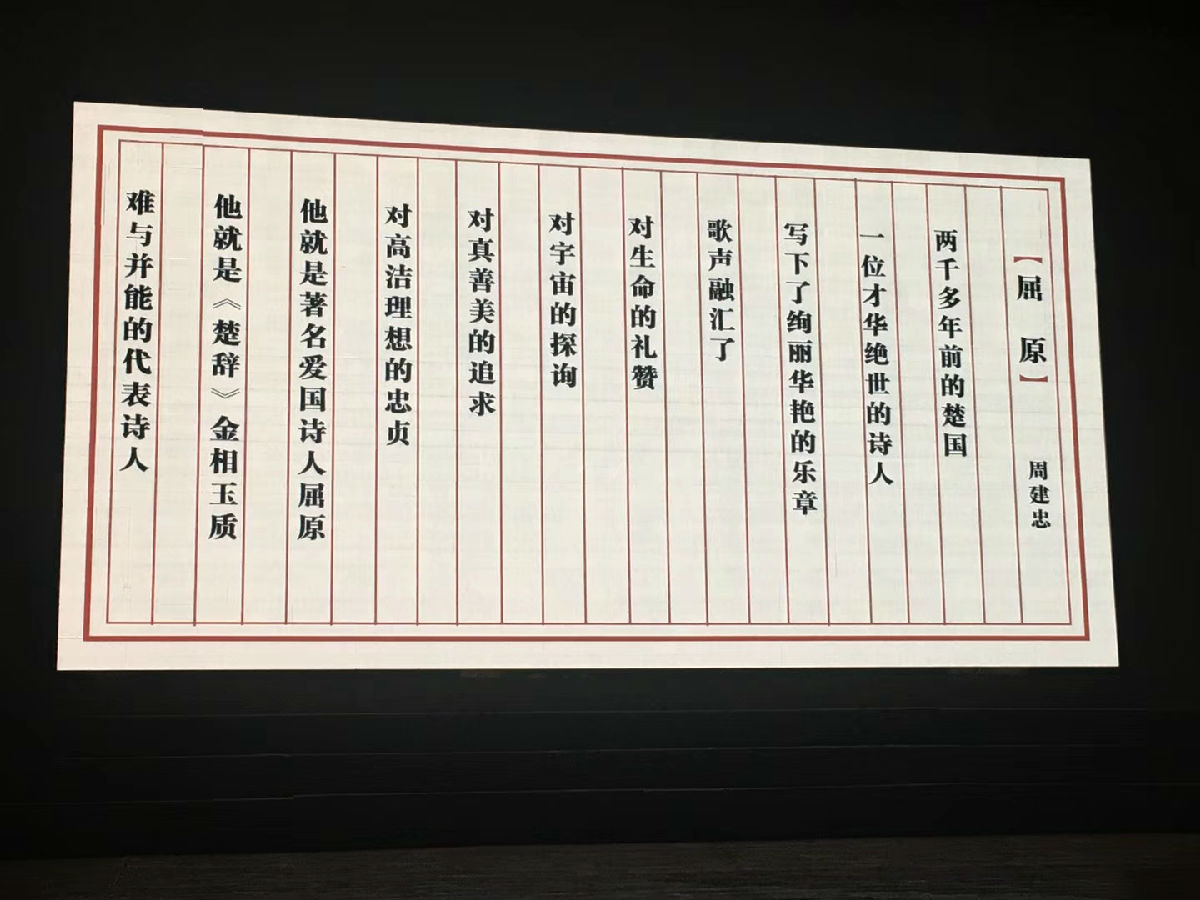 【屈原】
周建忠
两千多年前的楚国
一位才华绝世的诗人
写下了绚丽华艳的乐章
歌声融汇了
对生命的礼赞
对宇宙的探询
对真善美的追求
对高洁理想的忠贞
他就是著名爱国诗人屈原
他就是《楚辞》金相玉质
难与并能的代表诗人